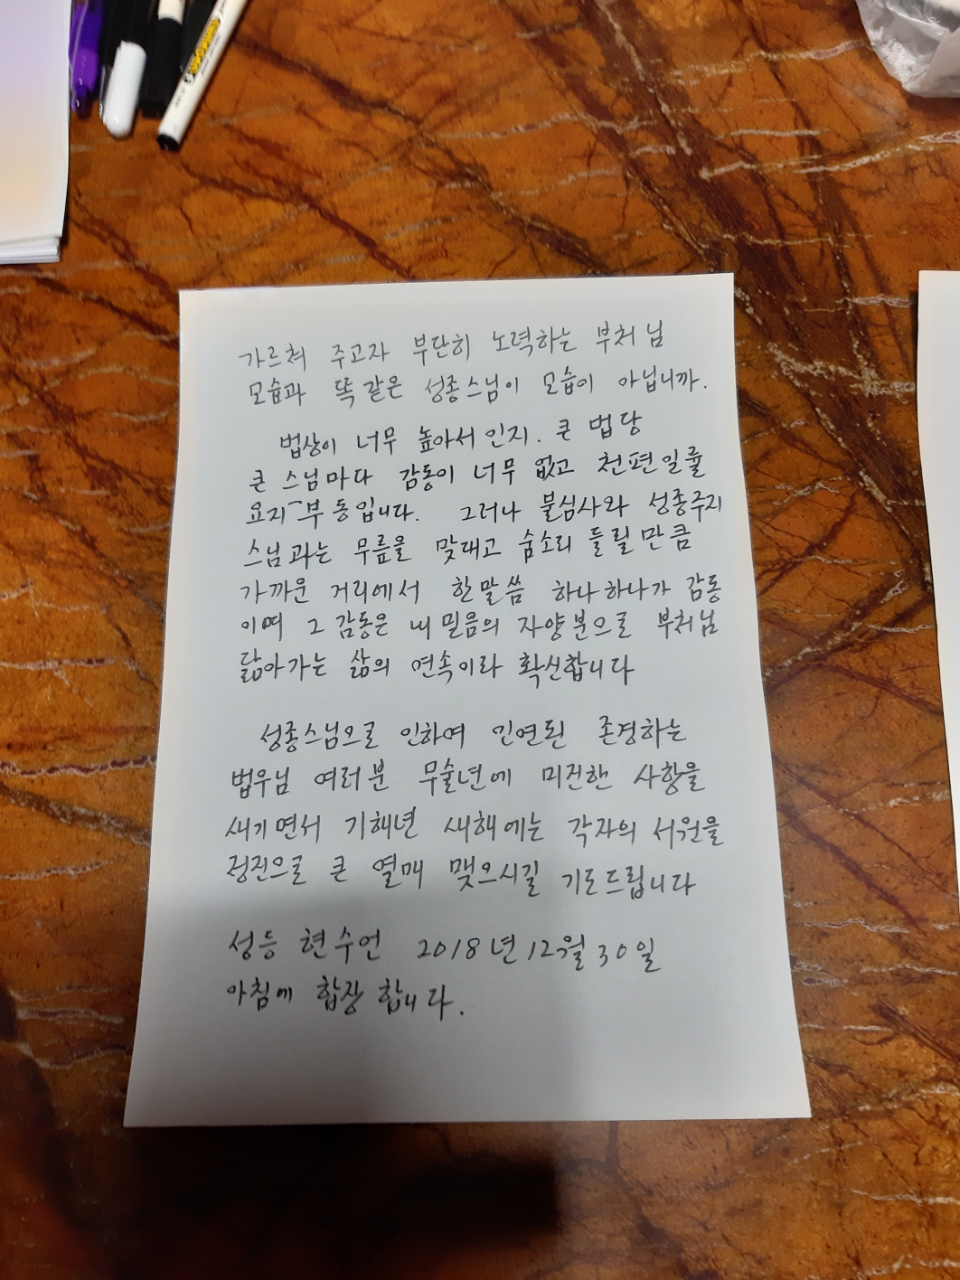 가르쳐 주고자 부단히 노력하는 부처님
모습과 똑 같은 성종스님이 모습이 아닙니까.
법상이 너무 높아서 인지. 큰 법당
큰 스님마다 감동이 너무 없고 천편일률
요지부동입니다. 그러나 불심사와 성종주지
스님과는 무릎을 맞대고 숨소리 들릴만큼
가까운 거리에서 한말씀 하나하나가 감동
이며 그 감동은 내 믿음의 자양분으로 부처님
닮아가는 삶의 연속이라 확신합니다
성종스님으로 인하여 인연된 존경하는
법우님 여러분 무술년에 미진한 사항을
새기면서 기해년 새해에는 각자의 서원을
정진으로 큰 열매 맺으시길 기도드립니다
성등 현수언 2018년 12월 30일
아침에 합장 합니다.